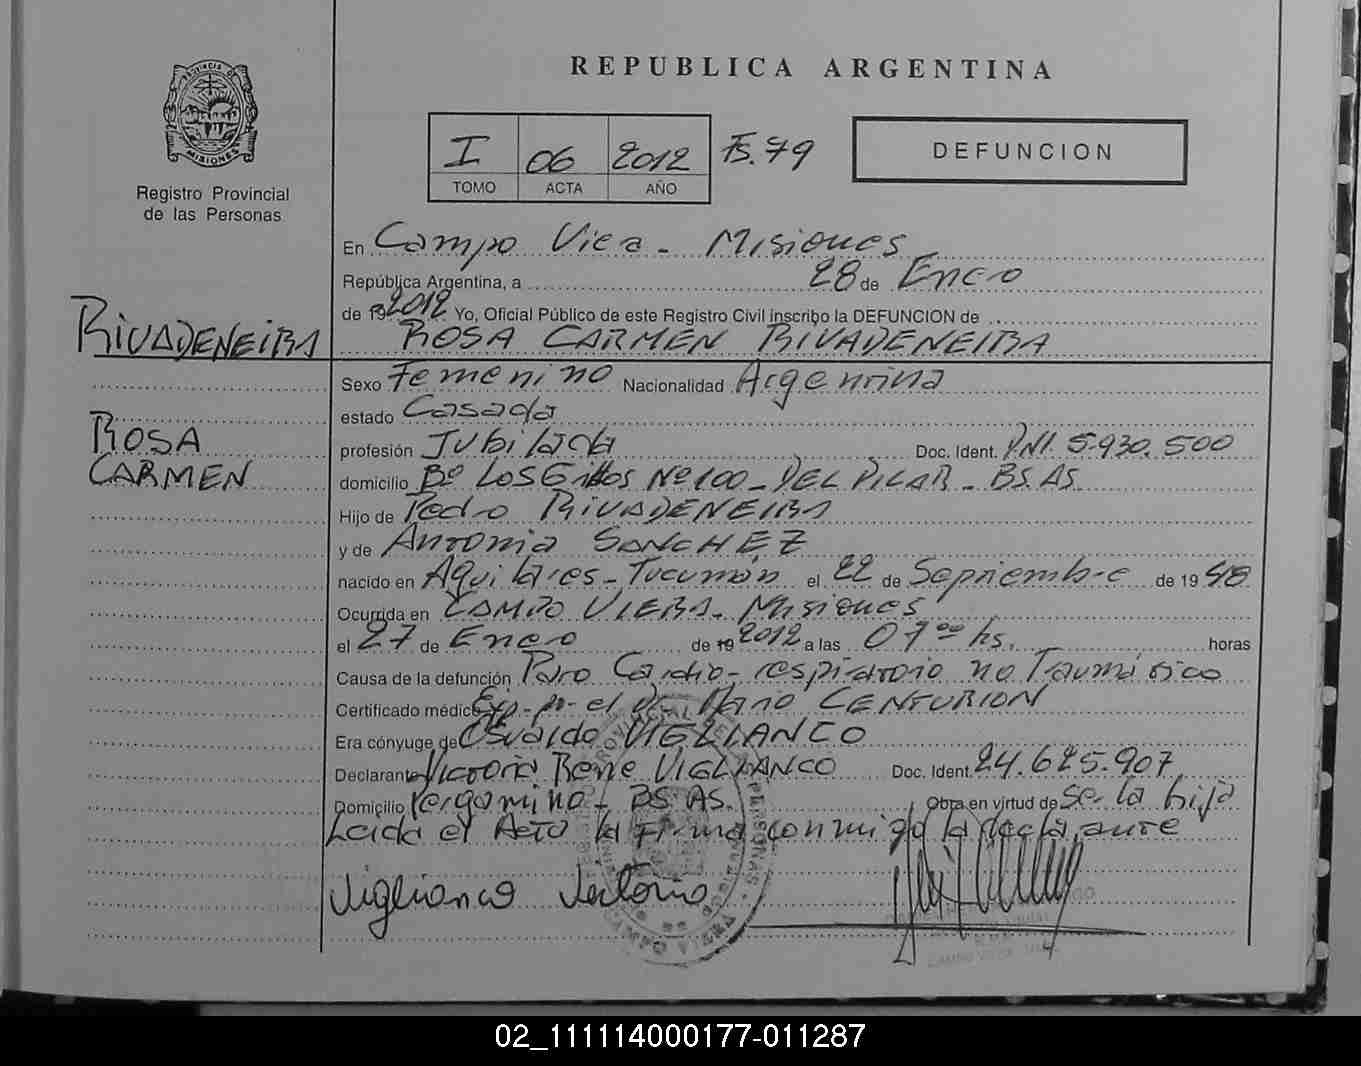 REPUBLICA ARGENTINA
PROVINCIA DE MISIONES
Registro Provincial
de las Personas
I 06 2012 Fs. 79
TOMO ACTA AÑO
DEFUNCION
En Campo Viera - Misiones
República Argentina, a 28 de Enero
de 19 2012 Yo, Oficial Público de este Registro Civil inscribo la DEFUNCION de
RIVADENEIRA
ROSA CARMEN RIVADENEIRA
Sexo Femenino Nacionalidad Argentina
estado Casada
ROSA
CARMEN
profesión Jubilada Doc. Ident. DNI. 5.930.500
domicilio Bº LOS Nº 100 - DEL PILAR - BS. AS.
Hijo de Pedro RIVADENEIRA
y de Antonia SANCHEZ
nacido en Aguilares - Tucumán el 22 de Septiembre de 19 48
Ocurrida en CAMPO VIERA - Misiones
el 27 de Enero de 19 2012 a las 07 00 hs. horas
Causa de la defunción Paro Cardio-respiratorio no Traumático
Certificado médico Exp. por el Dr. Mario CENTURION
Era cónyuge de Osvaldo VIGLIANCO
Declarante Victoria Rene VIGLIANCO Doc. Ident. 24.625.907
Domicilio Pergamino - BS. AS. Obra en virtud de ser la hija
Leida el Acta la firma conmigo la declarante
Viglianco Victoria
02_111114000177-011287